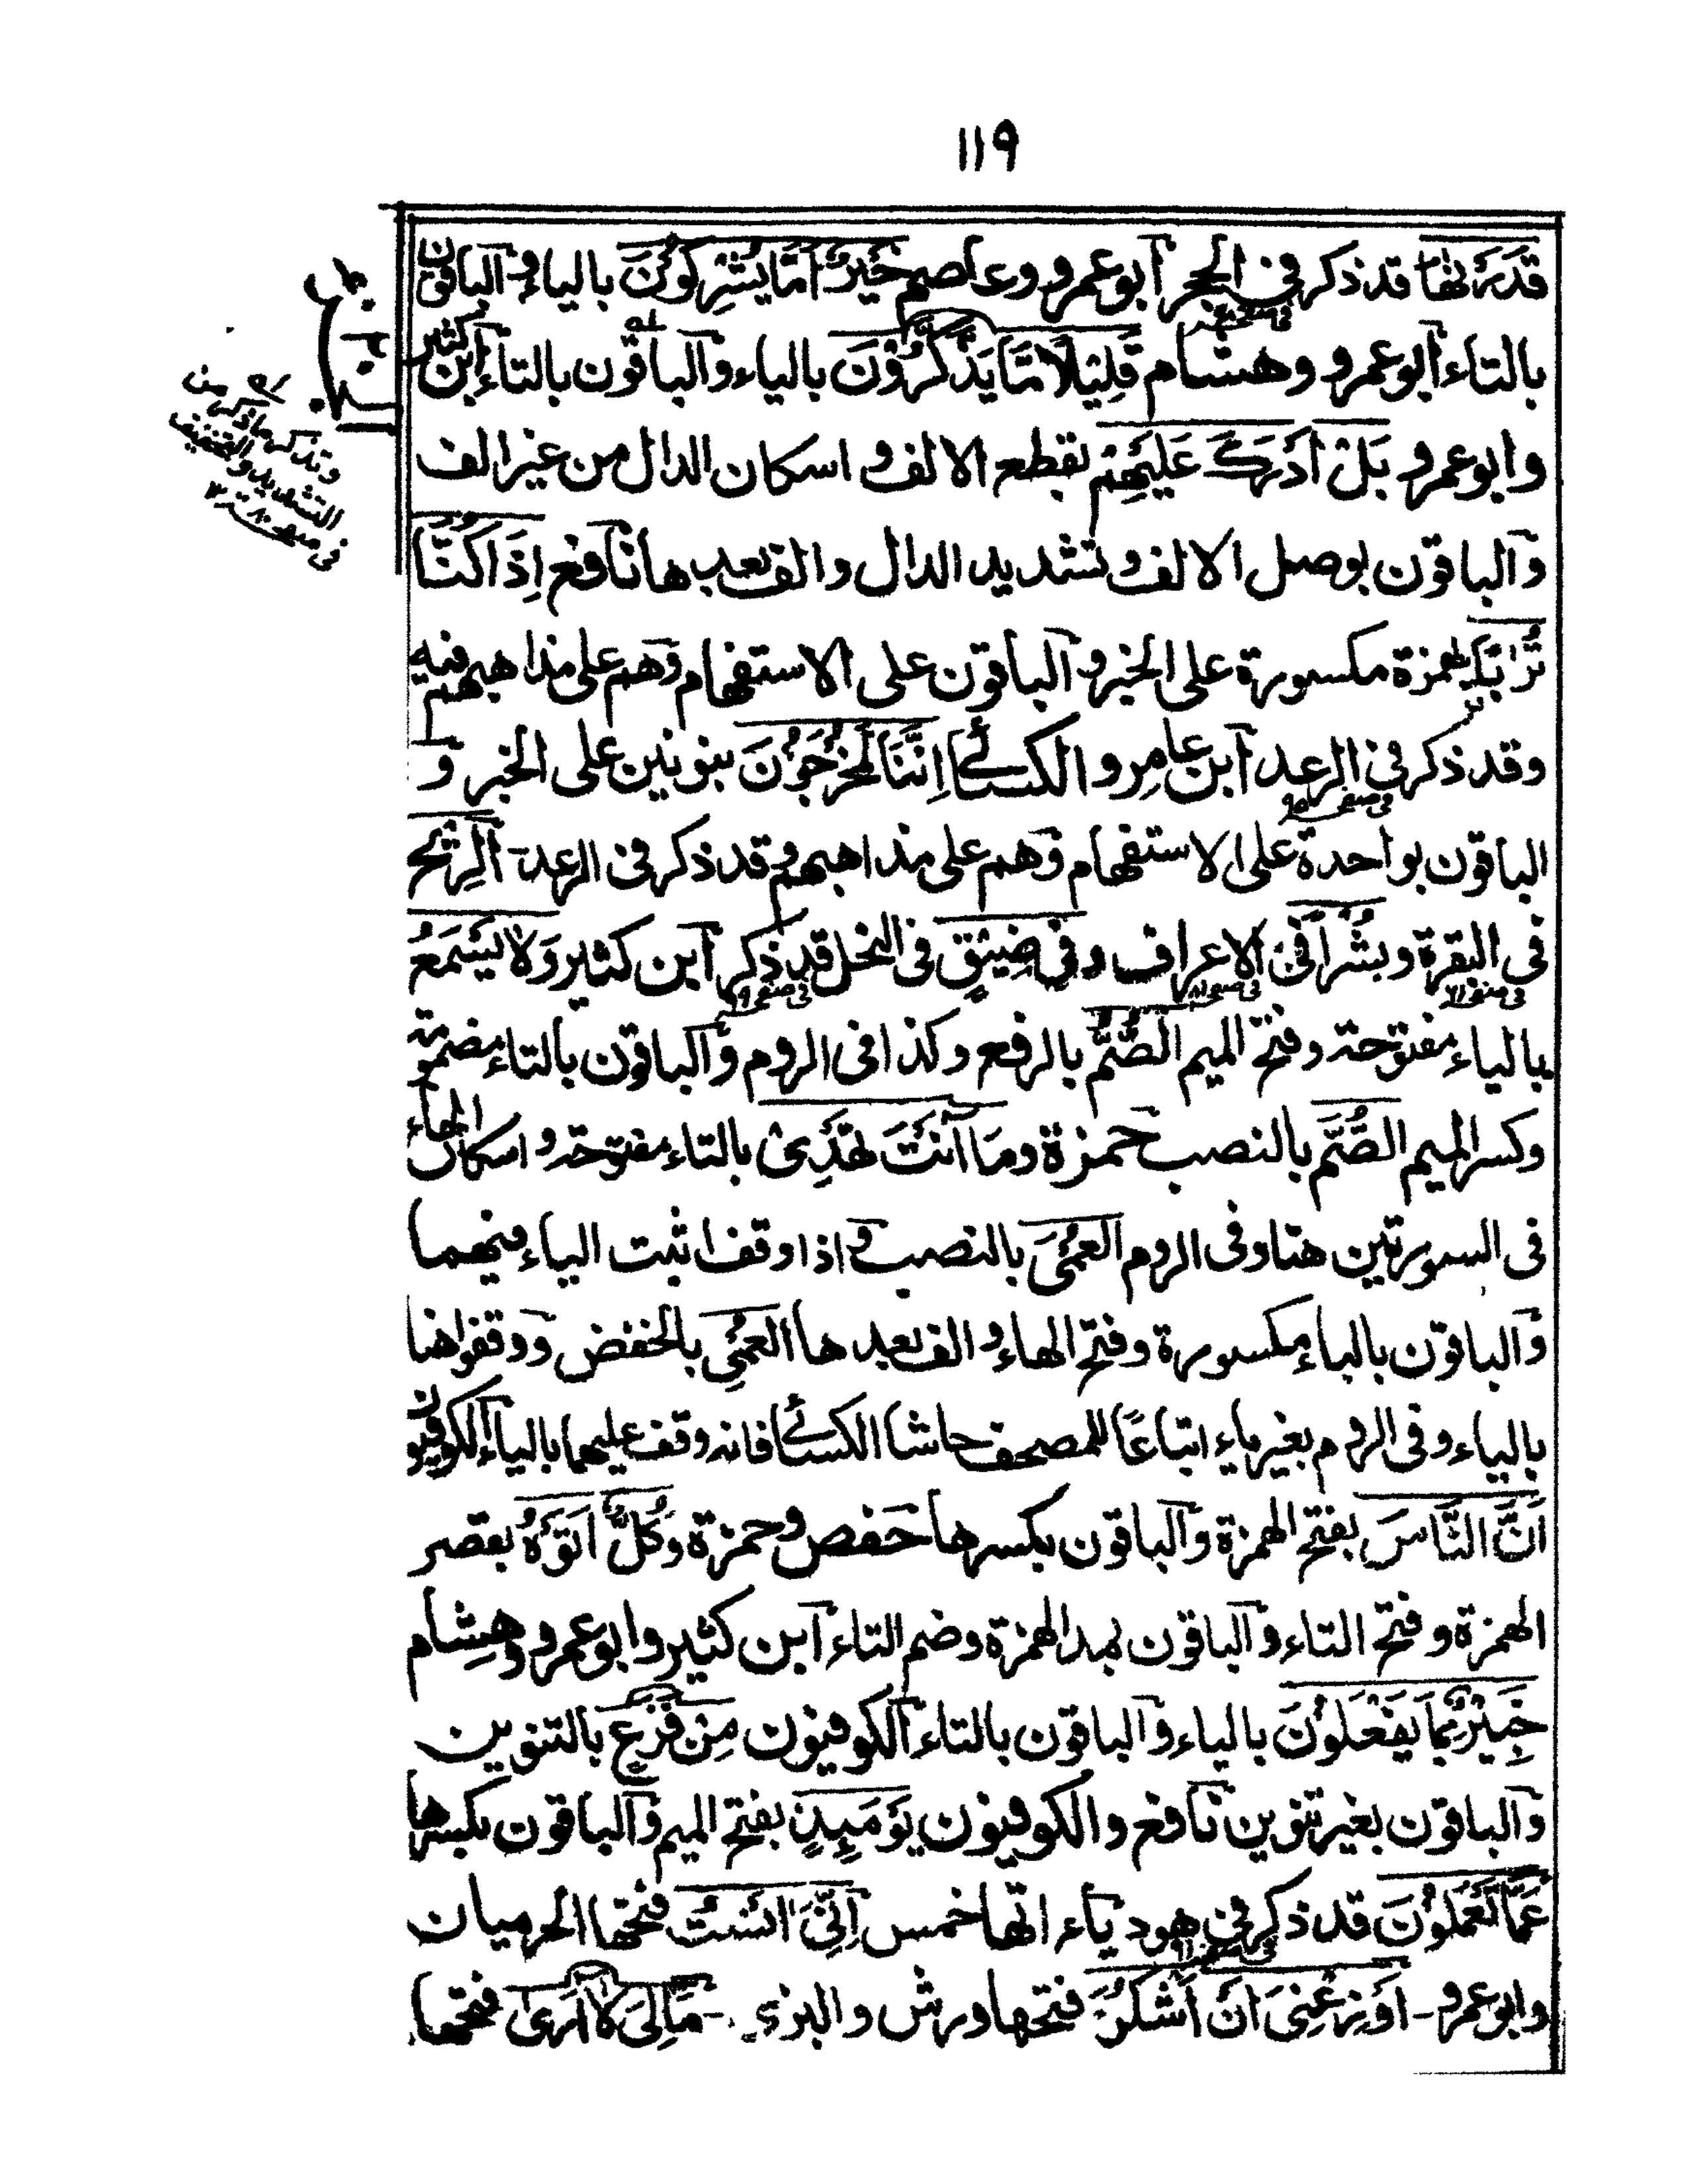 ١١٩
قَدَّرْنٰهَا قد ذكر في الحجر ابو عمرو وعاصم خَيْرٌ اَمَّا يُشْرِكُوْنَ بالياء و الباقون
في صفحه
بالتاء ابو عمرو وهشام قَلِيْلًا مَّا يَذَّكَّرُوْنَ بالياء والباقون بالتاء ابن كثير
وابو عمرو بَلْ اَدْرَكَ عَلَيْهِمْ بقطع الالف و اسكان الدال من غير الف
والباقون بوصل الالف و تشديد الدال والف بعدها نافع اِذَا كُنَّا
تُرَابًا بهمزة مكسورة على الخبر و الباقون على الاستفهام وهم على مذاهبهم فيه
وقد ذكر في الرعد ابن عامر و الكسائي اِنَّنَا لَمُخْرَجُوْنَ بنونين على الخبر و
في صفحه ٩٥
الباقون بواحدة على الاستفهام وهم على مذاهبهم و قد ذكر في الرعد الرِّيْحَ
في البقرة و بُشْرًا في الاعراف و في ضَيْقٍ في النحل قد ذكر ابن كثير وَلَا يَسْمَعُ
في صفحه ٦١ في صفحه ٨١ في صفحه
بالياء مفتوحة وفتح الميم الصُّمُّ بالرفع وكذا في الروم و الباقون بالتاء مضمومة
وكسر الميم الصُّمَّ بالنصب حمزة وَمَا اَنْتَ تَهْدِيْ بالتاء مفتوحة و اسكان الهاء
في السورتين هنا وفي الروم الْعُمْيَ بالنصب و اذا وقف اثبت الياء فيهما
والباقون بالباء مكسورة وفتح الهاء و الف بعدها الْعُمْيِ بالخفض ووقفوا هنا
بالياء وفي الروم بغير ياء اتباعًا للمصحف حاشا الكسائي فانه وقف عليهما بالياء الكوفيون
اَنَّ النَّاسَ بفتح الهمزة والباقون بكسرها حفص و حمزة وَكُلٌّ اَتَوْهُ بقصر
الهمزة و فتح التاء والباقون بمد الهمزة وضم التاء ابن كثير وابو عمرو وهشام
خَبِيْرٌ بِمَا يَفْعَلُوْنَ بالياء والباقون بالتاء الكوفيون مِنْ فَزَعٍ بالتنوين
والباقون بغير تنوين نافع والكوفيون يَوْمَئِذٍ بفتح الميم والباقون بكسرها
عَمَّا تَعْمَلُوْنَ قد ذكر في هود ياءاتها خمس اِنِّيَ اٰنَسْتُ فتحها الحرميان
في صفحه
وابو عمرو - اَوْزِعْنِيَ اَنْ اَشْكُرَ فتحها ورش والبزي - مَا لِيَ لَا اَرٰى فتحها
وتذكر ما ذكر من
التشديد والتخفيف
في صفحه